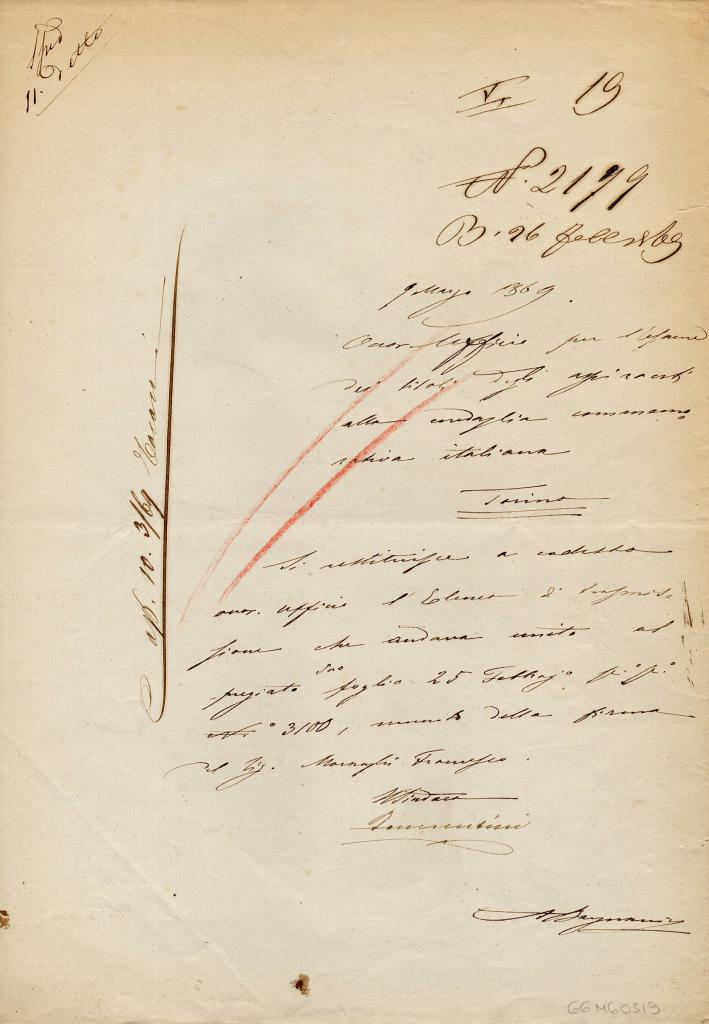 11. Detto
19
N.° 2179
B. 26 febb. 1869
9 Marzo 1869.
Onor. Uffizio per l'esame
dei titoli degli aspiranti
alla medaglia commemo=
rativa italiana
Torino
Si restituisce a codesto
onor. uffizio l'Elenco di trasmis=
sione che andava unito al
pregiato suo foglio 25 Febbrajo p.° p.°
N.° 3100, munito della firma
del Sig. Francesco.
Il Sindaco
10. 3/69
GGM60519